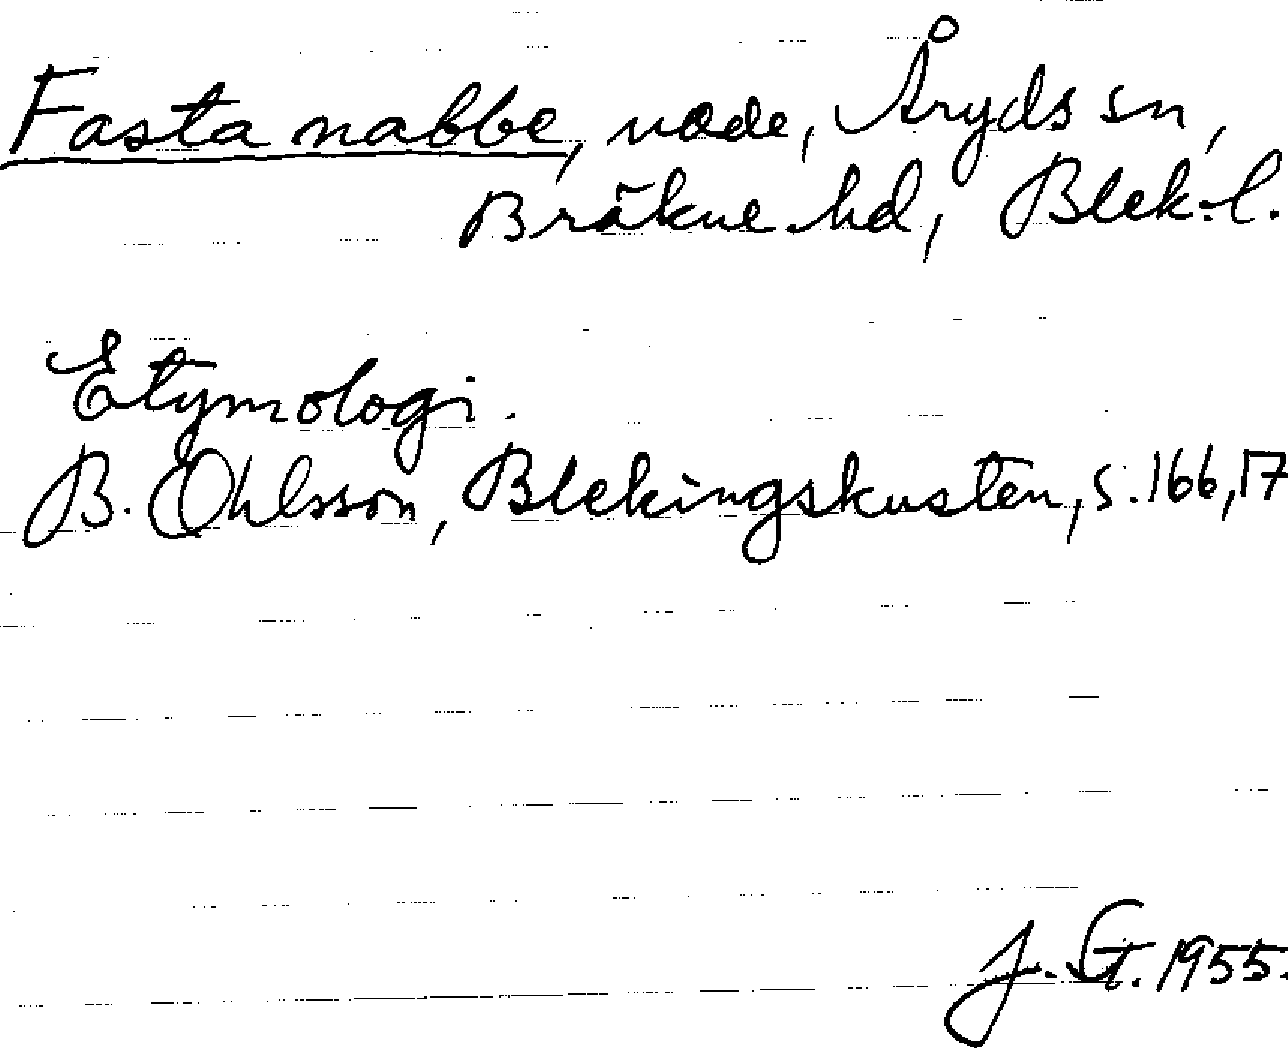 Fasta nabbe, udde, Åryds sn,
Bräkne hd, Blek. l.
Etymologi.
B. Ohlsson, Blekingskusten, s. 166, 17
J. G. 1955.